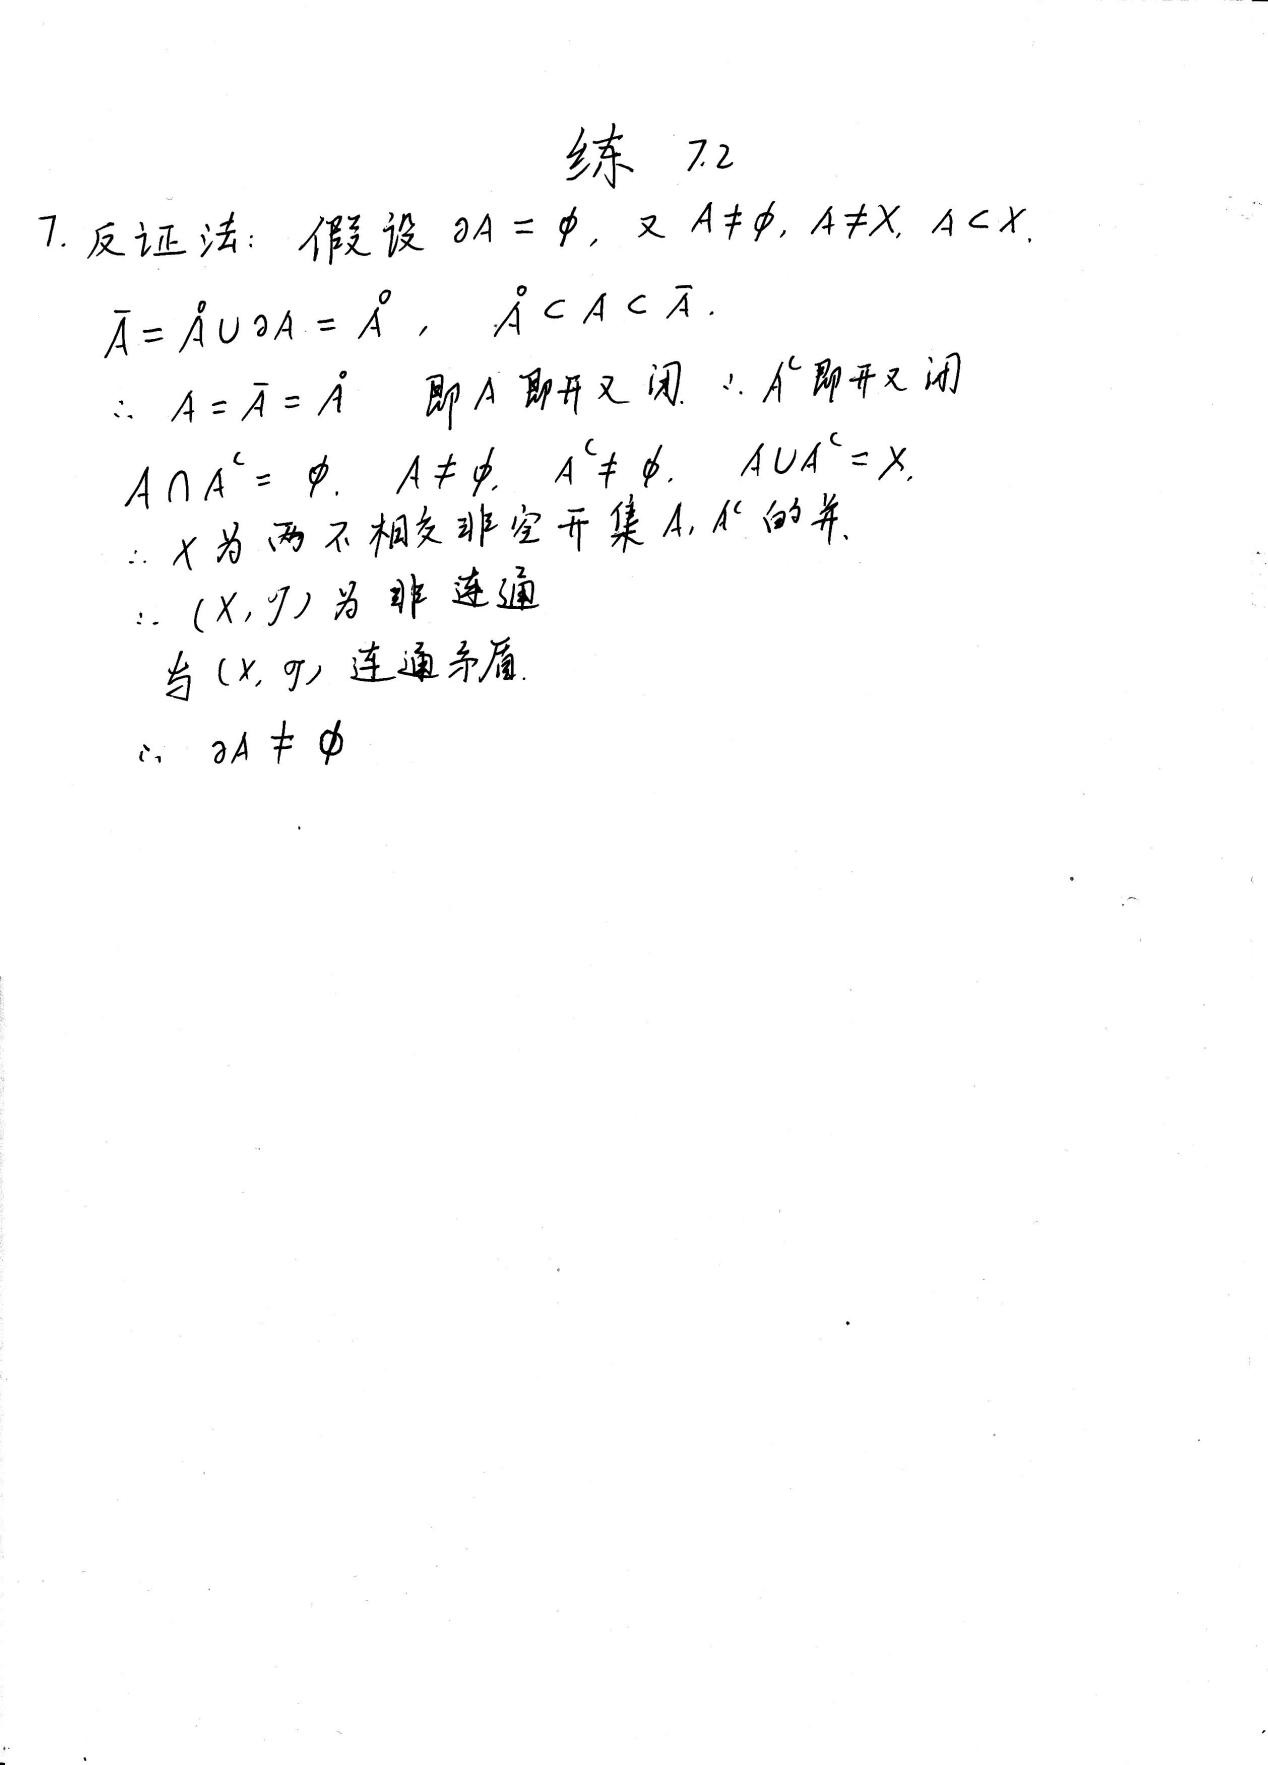 练 7.2
7. 反证法: 假设 ∂A = ∅, 又 A≠∅, A≠X, A⊂X.
Ā = Å∪∂A = Å, Å⊂A⊂Ā.
∴ A = Ā = Å 即A即开又闭. ∴ Aᶜ即开又闭
A∩Aᶜ = ∅. A≠∅. Aᶜ≠∅. A∪Aᶜ = X.
∴ X为两不相交非空开集A, Aᶜ的并.
∴ (X, 𝒯)为非连通
与(X, 𝒯)连通矛盾.
∴ ∂A ≠ ∅